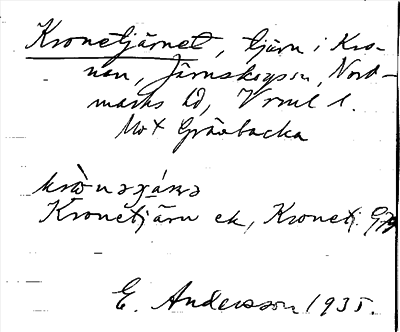 Kronetjärnet, tjärn i Kro-
nan, Järnskogssn, Nord-
marks hd, Vrml l.
Mot Gräsbacka
Kronetjärn ek, Kronetj. G79
E. Andersson 1935.